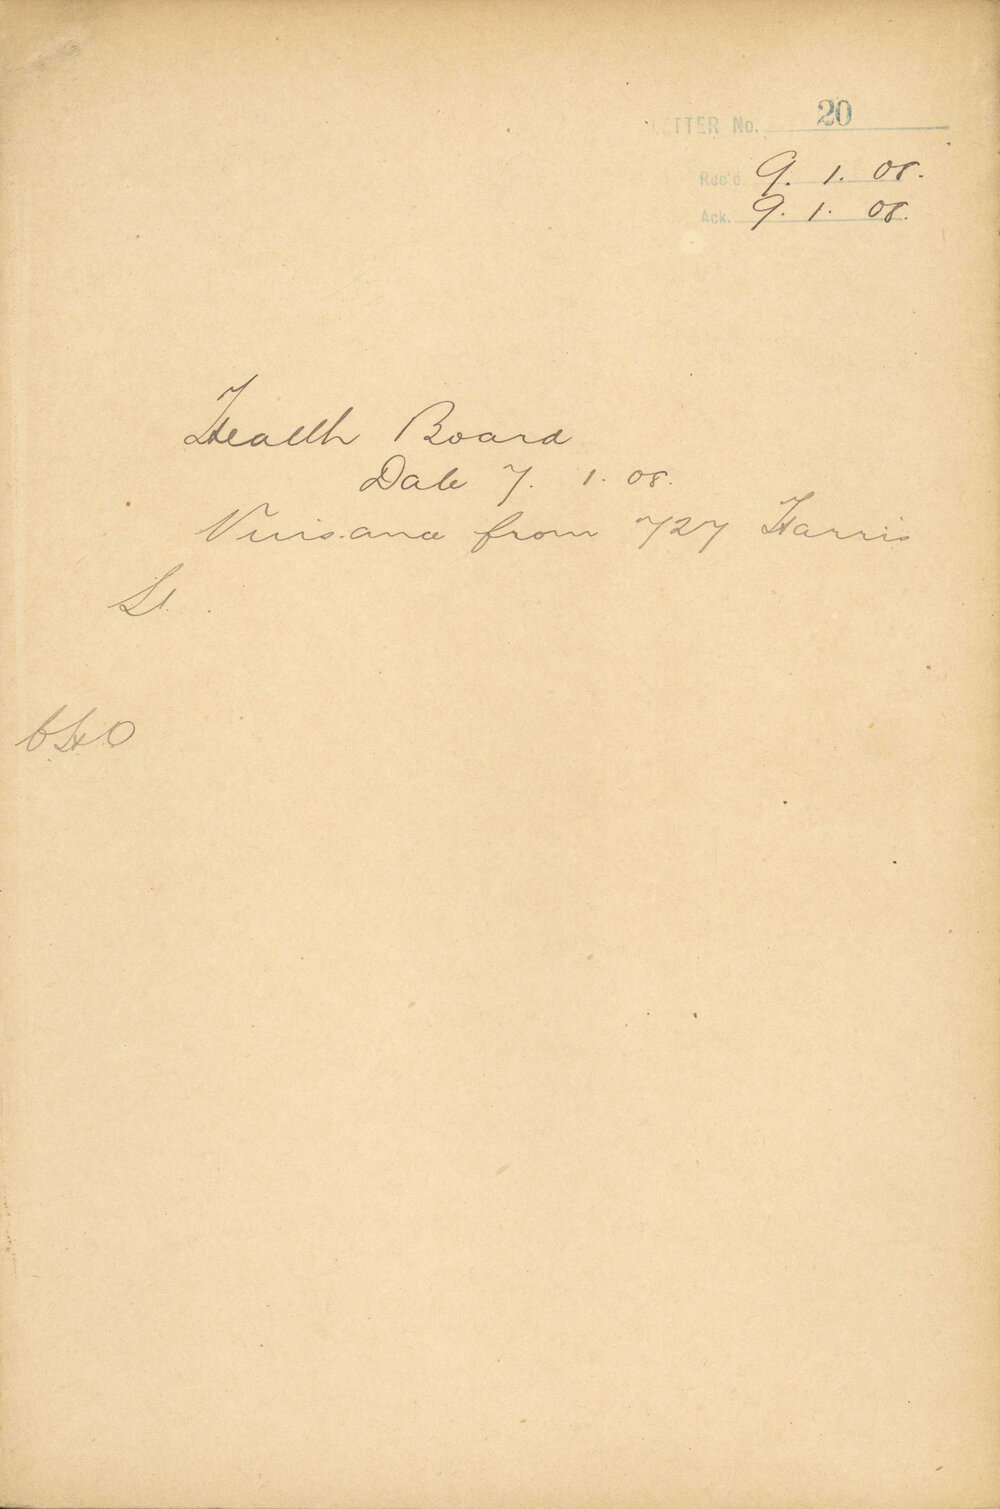 LETTER No. 20
Rec'd 9. 1. 08.
Ack. 9. 1. 08.
Health Board
Date 7. 1. 08.
Nuisance from 727 Harris
St.
CHO